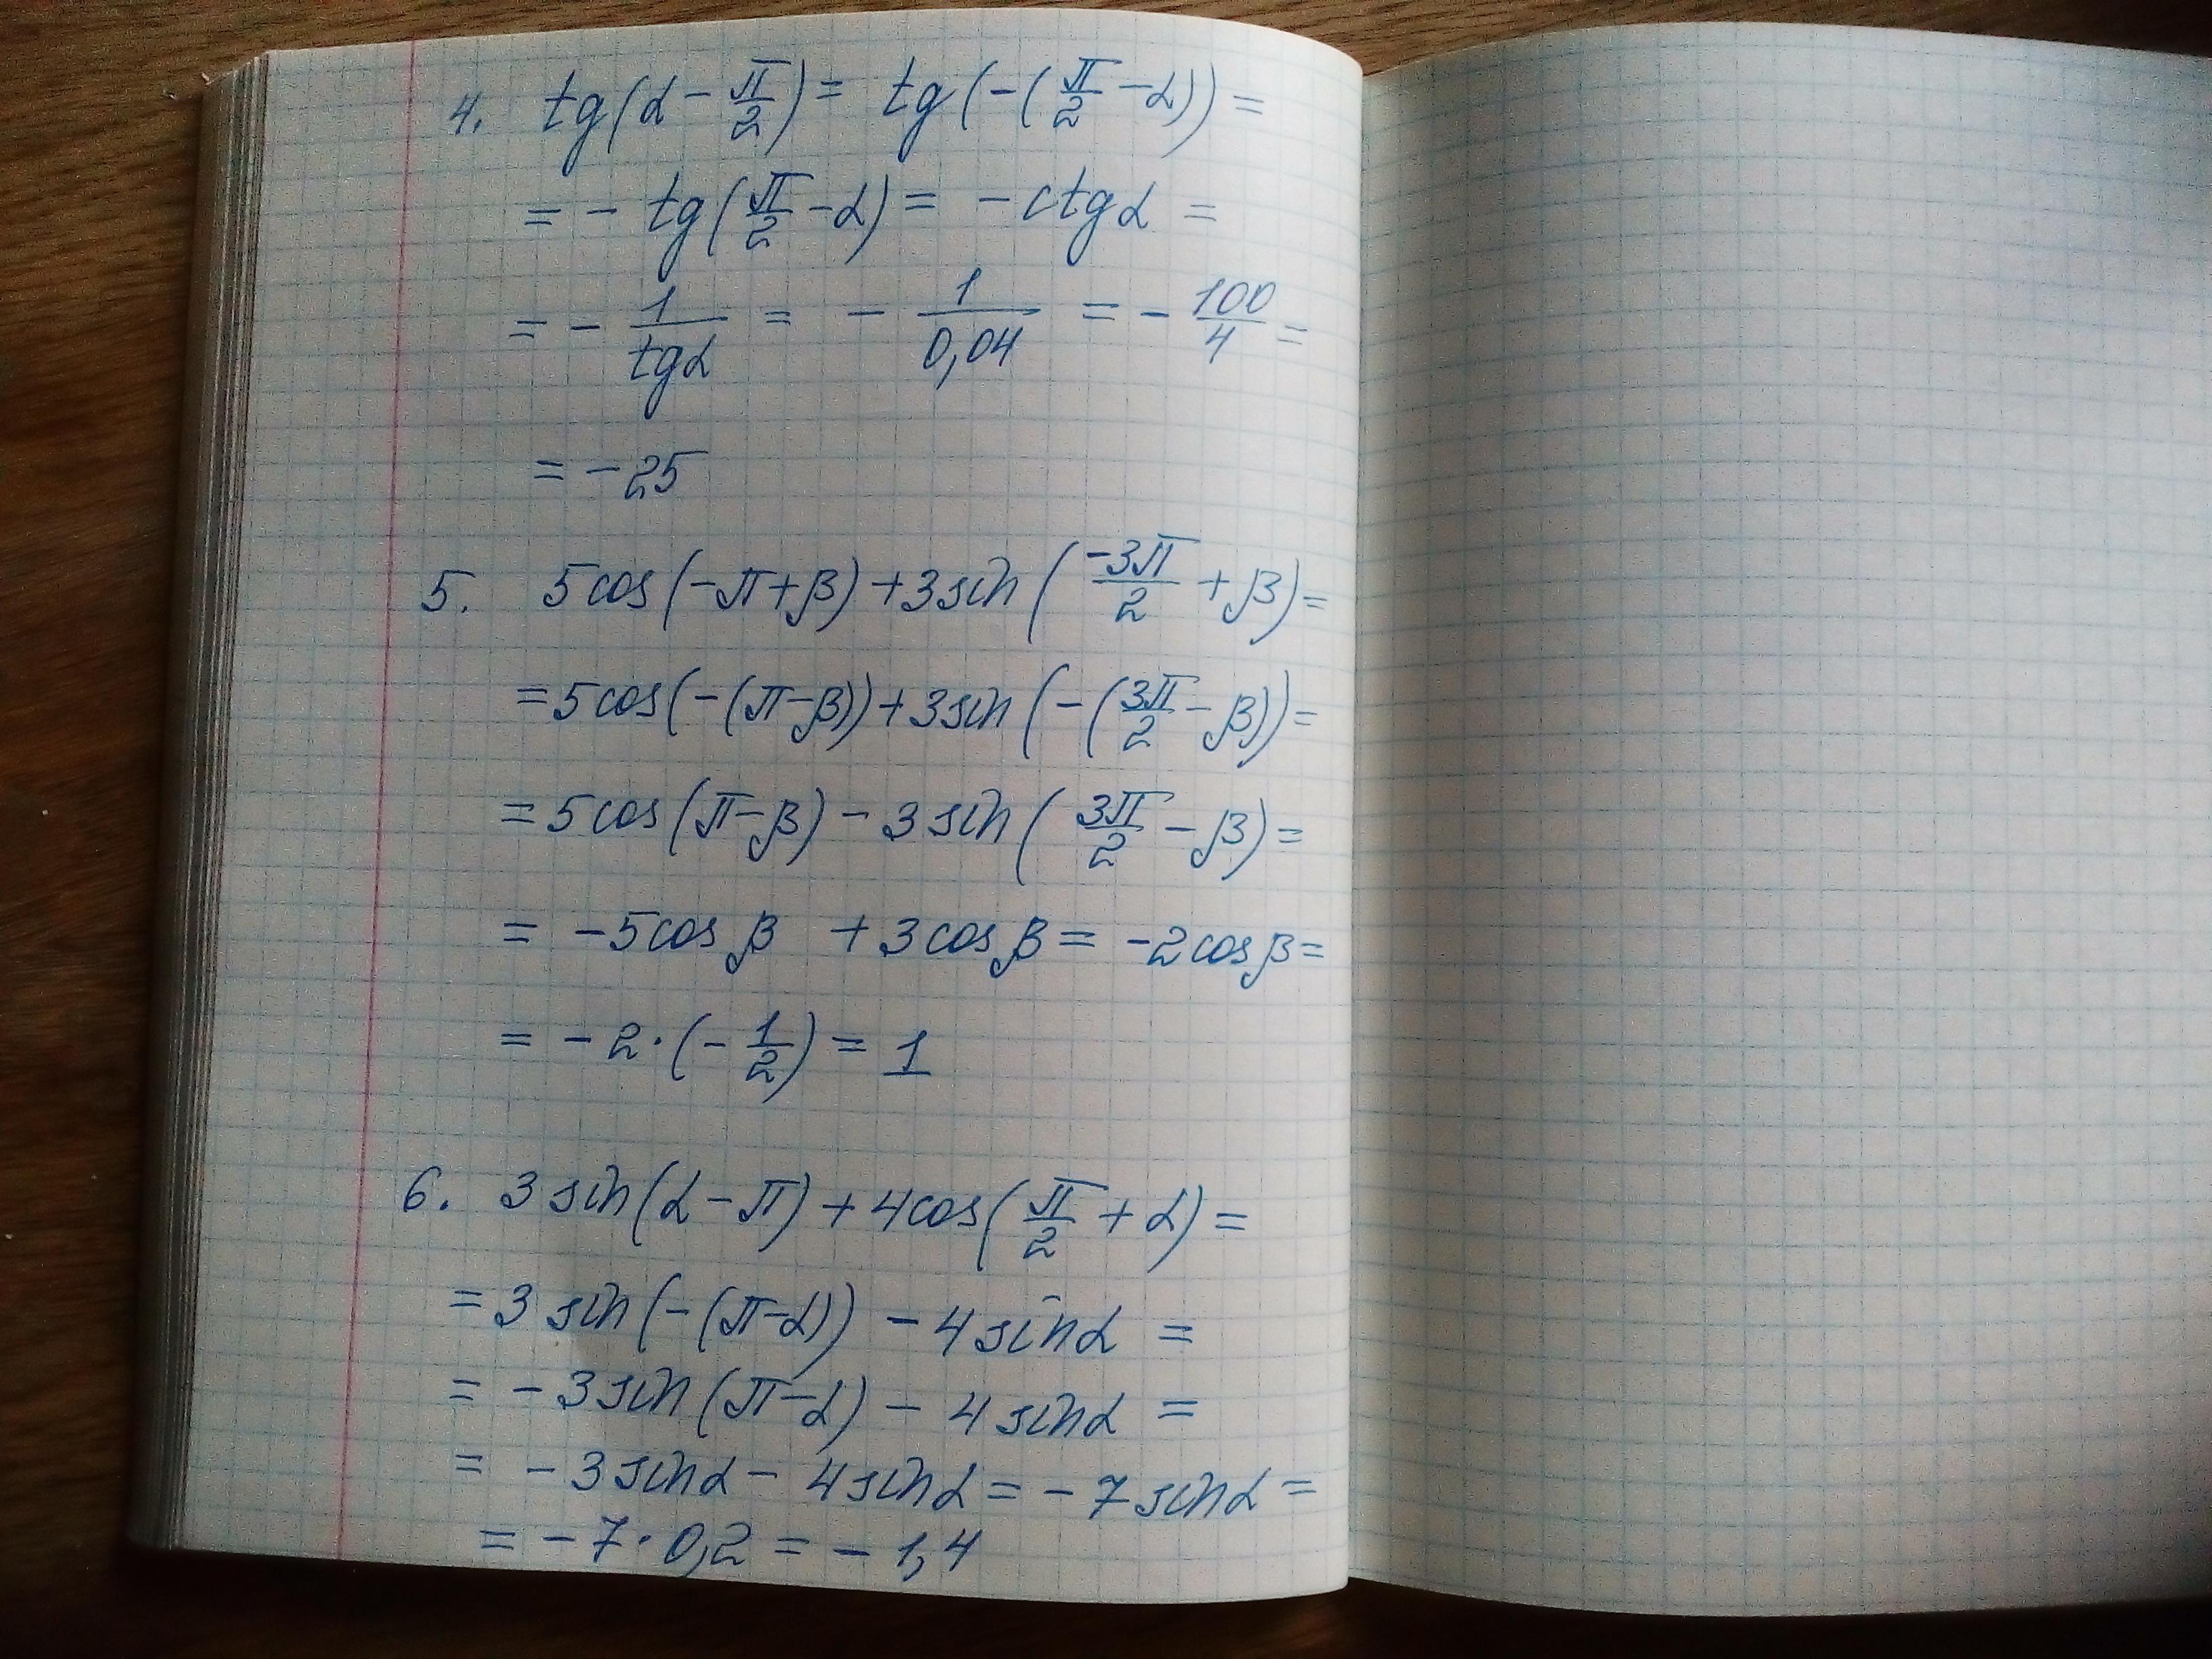 4. tg(α - π/2) = tg(-(π/2 - α)) =
= - tg(π/2 - α) = - ctgα =
= - 1/tgα = - 1/0,04 = - 100/4 =
= - 25
5. 5cos(-π+β) + 3sin(-3π/2 + β) =
= 5cos(-(π-β)) + 3sin(-(3π/2 - β)) =
= 5cos(π-β) - 3sin(3π/2 - β) =
= -5cosβ + 3cosβ = -2cosβ =
= - 2·(- 1/2) = 1
6. 3sin(α - π) + 4cos(π/2 + α) =
= 3sin(-(π-α)) - 4sinα =
= - 3sin(π-α) - 4sinα =
= - 3sinα - 4sinα = - 7sinα =
= - 7·0,2 = - 1,4